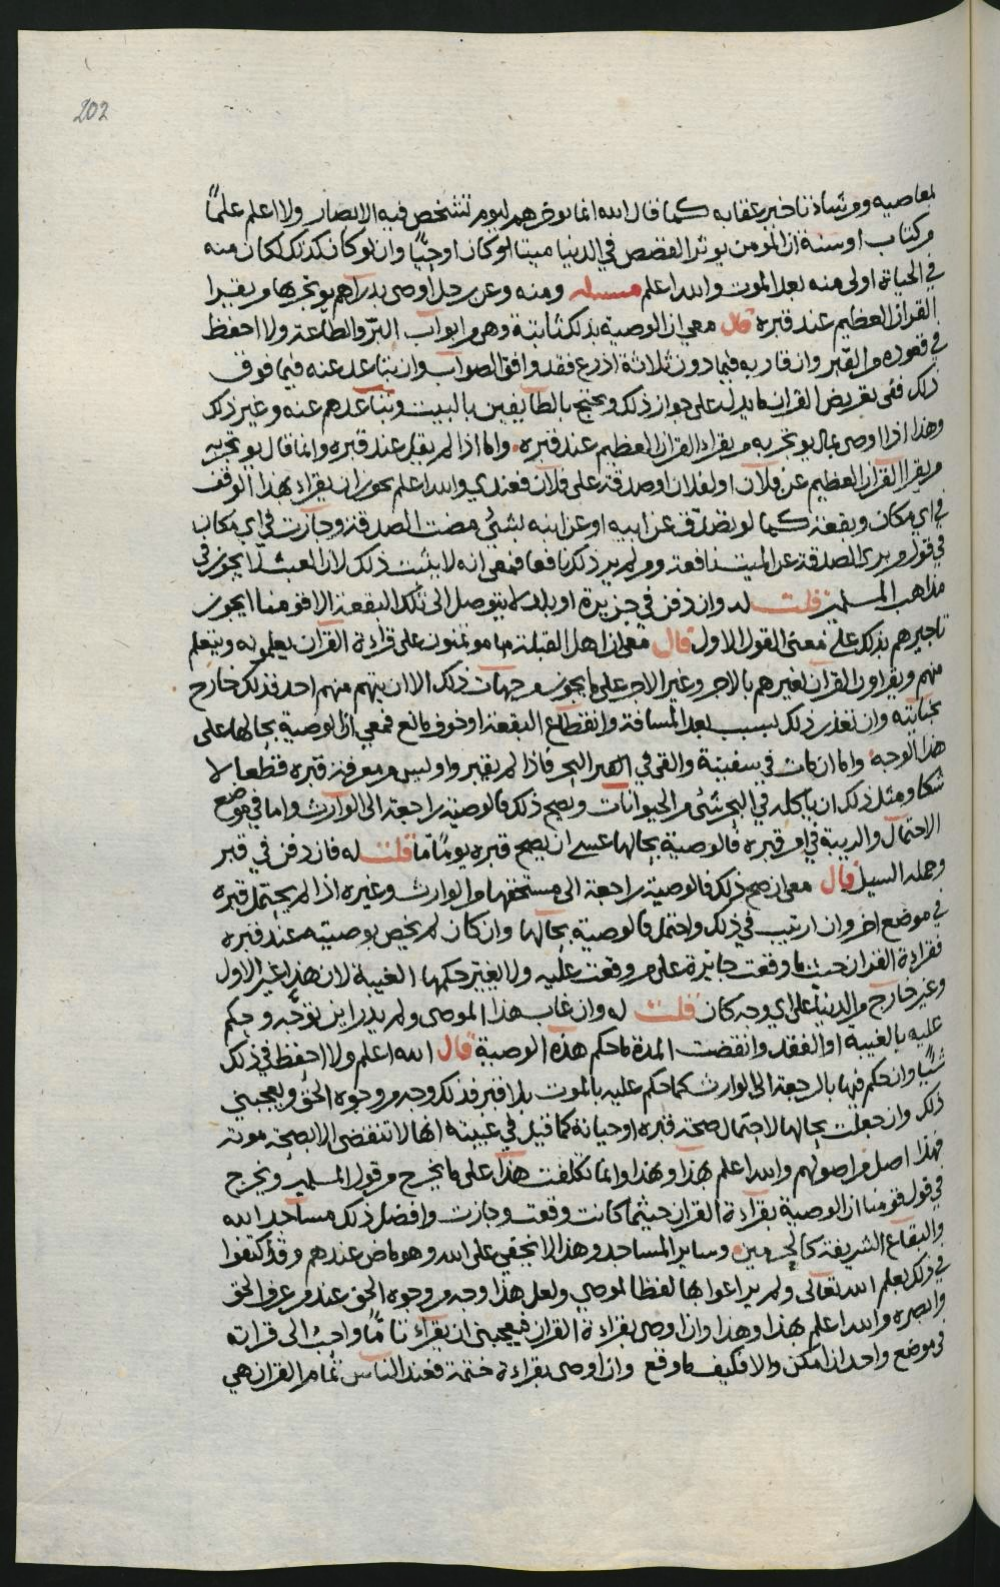 202
لمعاصيه ومن شاذ تاخير عقابه كما قال الله انما يوخرهم ليوم تشخص فيه الابصار ولا اعلم علمًا
من كتاب او سنة ان المومن يوثر القصص في الدنيا ميتا لو كان او حيًّا وان لو كان كذلك لكان منه
في الحياة اولى منه بعد الموت والله اعلم مسئله ومنه وعن رجل اوصى بدراهم يوتجر بها من يقرا
القران العظيم عند قبره قال معي ان الوصية بذلك ثابتة وهي من ابواب البرّ والطاعة ولا احفظ
في قعوده من القبر وان قاربه فيما دون ثلاثة اذرع فقد وافق الصواب وان تباعد عنه فيما فوق
ذلك ففي تقريض القران ما يدل على جواز ذلك ويحتج بالطايفين بالبيت وتباعدهم عنه وغير ذلك
وهذا اذا اوصى بمال يوتجر به من يقراء القران العظيم عند قبره واما اذا لم يقل عند قبره وانما قال يوتجر به
من يقرا القران العظيم عن فلان او لفلان او صدقة على فلان فعندي والله اعلم يجوز ان يقراء بهذا الوقف
في اي مكان وبقعة كما لو تصدّق عن ابيه او عن ابنه بشئ مضت الصدقة وجازت في اي مكان
في قول من يرى الصدقة عن الميت نافعة ومن لم ير ذلك نافعا فمعي انه لا يثبت ذلك لان العبث لا يجوز في
مذاهب المسلمين قلت له وان دفن في جزيرة او بلد لا يتوصل الى تلك البقعة الا قومنا ايجوز
تاجيرهم بذلك على معنى القول الاول قال معي ان اهل القبلة مامونون على قراءة القران يعلمونه ويتعلم
منهم ويقراون القران لغيرهم بالاجر وغير الاجر على ما يجوز من جهات ذلك الا ان يتهم منهم احد فذلك خارج
بخيانته وان تعذر ذلك بسبب بعد المسافة وانقطاع البقعة او خوف مانع فمعي ان الوصية بحالها على
هذا الوجه واما ان مات في سفينة والقي في البحر فاذا لم يقبر وايس من معرفة قبره قطعا لا
شكا ومثل ذلك ان ياكله في البحر شئ من الحيوانات ويصح ذلك فالوصية راجعة الى الوارث واما في موضع
الاحتمال والريبة في امر قبره فالوصية بحالها عسى ان يصح قبره يومًا ما قلت له فان دفن في قبر
وحمله السيل قال معي ان صح ذلك فالوصية راجعة الى مستحقها من الوارث وغيره اذا لم يحتمل قبره
في موضع اخر وان ارتيب في ذلك واحتمل فالوصية بحالها وان كان لم يخص بوصيته عند قبره
فقراءة القران حيث ما وقعت جايزة على من وقعت عليه ولا يغيّر حكمها الغيبة لان هذا غير الاول
وغير خارج من الدنيا على اي وجه كان قلت له وان غاب هذا الموصى ولم يدر اين توجّه وحكم
عليه بالغيبة او الفقد وانقضت المدة ما حكم هذه الوصية قال الله اعلم ولا احفظ في ذلك
شيًا وان حكم فيها بالرجعة الى الوارث كما حكم عليه بالموت بلا قبر فذلك وجه من وجوه الحق ويعجبني
ذلك وان جعلت بحالها لاحتمال صحة قبره او حياته كما قيل في غيبته انها لا تنقضى الا بصحة موته
فهذا اصل من اصولهم والله اعلم بهذا وهذا وانما تكلفت هذا على ما يخرج من قول المسلمين ويخرج
في قول قومنا ان الوصية بقراءة القران حيثما كانت وقعت وجازت وافضل ذلك مساجد الله
والبقاع الشريفة كالحرمين وساير المساجد وهذا لا يخفى على الله وهو ماض عندهم وقد اكتفوا
في ذلك بعلم الله تعالى ولم يراعوا بها لفظ الموصي ولعل هذا وجه من وجوه الحق عند من عرف الحق
وابصره والله اعلم بهذا وهذا واذا اوصى بقراءة القران فيعجبني ان يقراء تامًّا واحبّ الى قراته
في موضع واحد اذا امكن والا فكيف ما وقع واذا اوصى بقراءة ختمة فعند الناس تمام القران هي